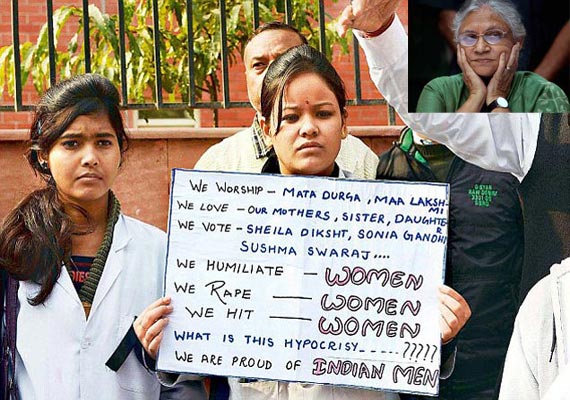 WE WORSHIP - MATA DURGA, MAA LAKSHMI
WE LOVE - OUR MOTHERS, SISTER, DAUGHTER
WE VOTE - SHEILA DIKSHT, SONIA GANDHI
SUSHMA SWARAJ ,...
WE HUMILIATE - WOMEN
WE RAPE - WOMEN
WE HIT - WOMEN
WHAT IS THIS HYPOCRISY .....?????
WE ARE PROUD OF INDIAN MEN